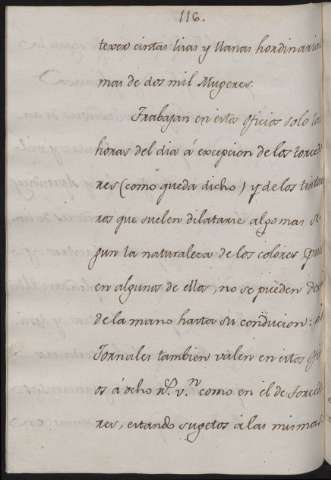 116.
texer cintas lisas y llanas hordinariam
mas de dos mil Mugeres.
Trabajan en estos oficios solo las
horas del dia á excepcion de los torcedo
res (como queda dicho) y de los tinto
ros que suelen dilatarse algo mas se
gun la naturaleza de los colores, pues
en algunos de ellos, no se pueden dex
de la mano hasta su conducion:
Jornales tambien valen en estos ofi
os á ocho r.s v.n como en el de Torcedo
res, estando sugetos á las mismas